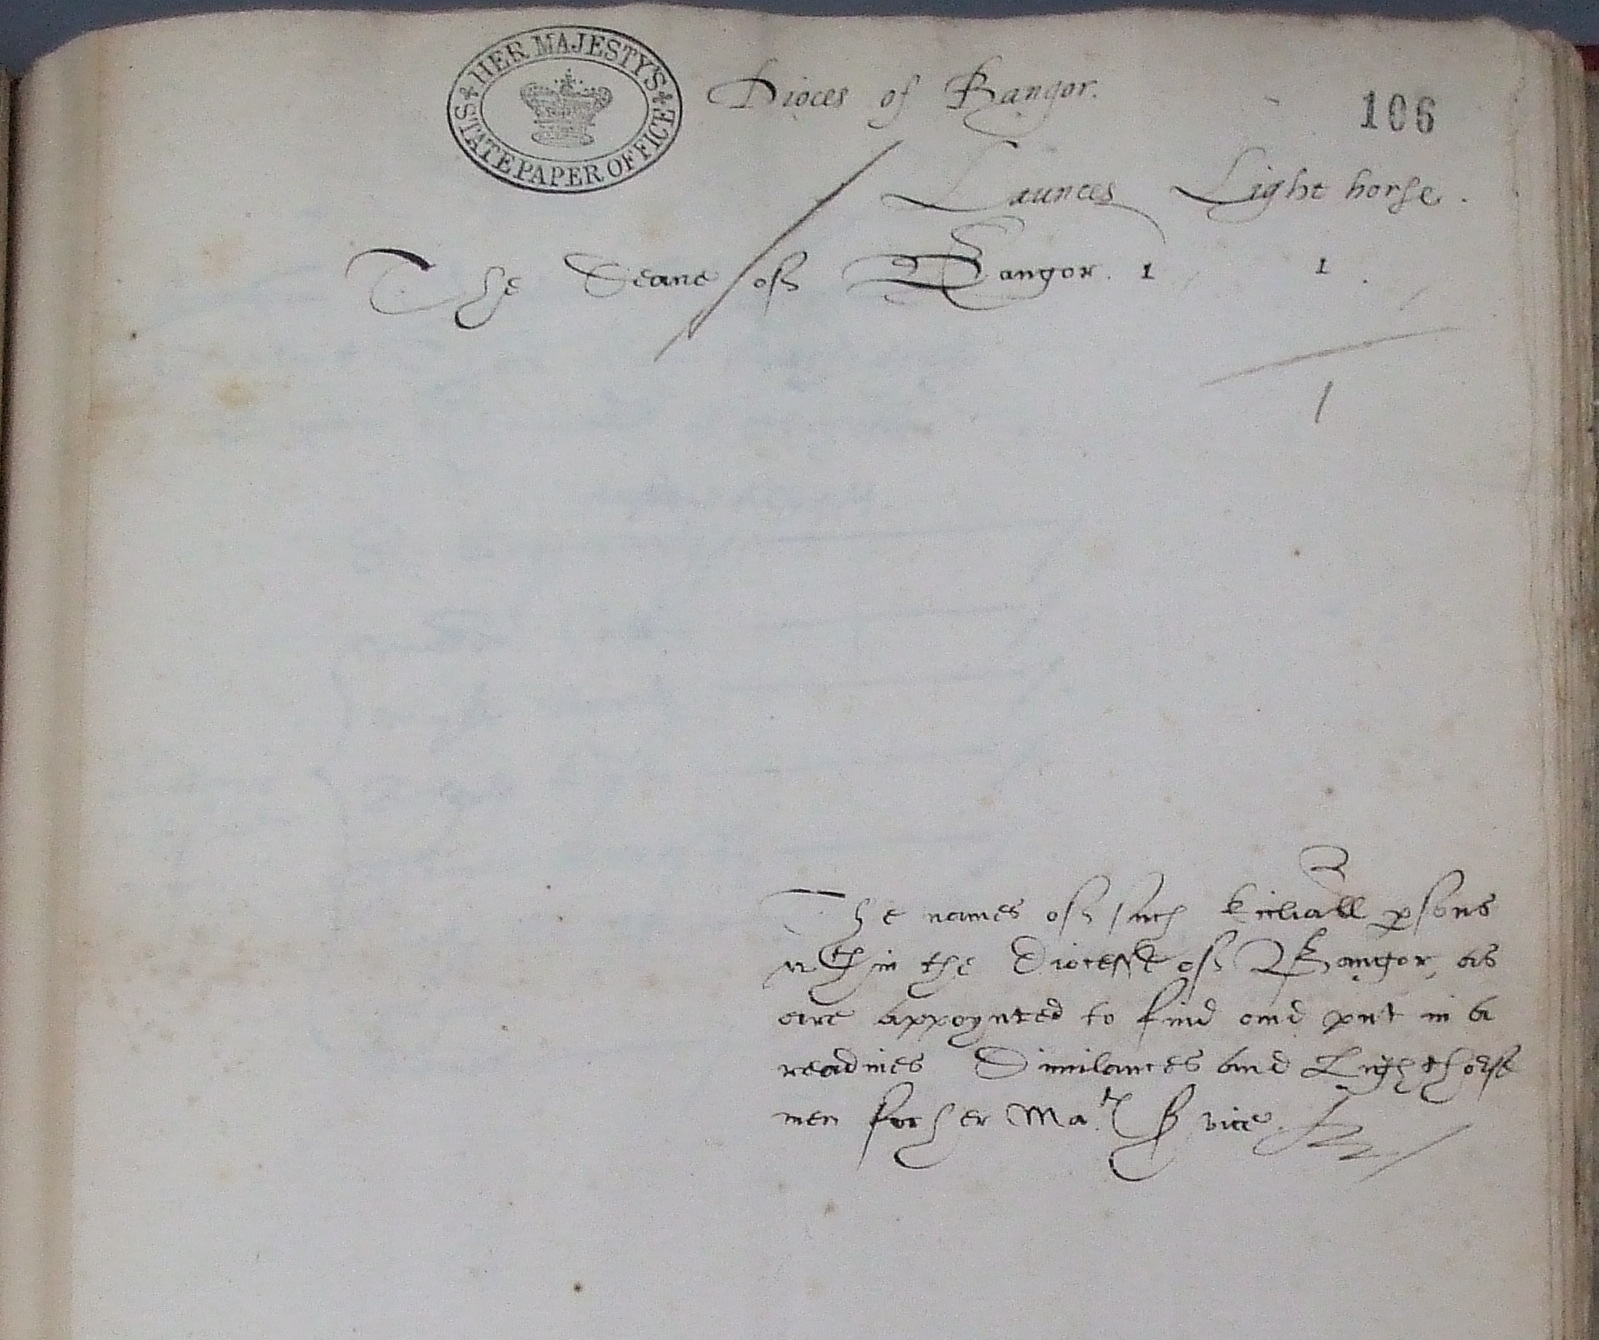 HER MAJESTY'S STATE PAPER OFFICE
Dioces of Bangor.
106
Launces Light horse.
The Deane off Bangor. 1 1
1
The names off such psons
wthin the Diocesse off Bangor, as
are appoynted to find and put in a
readines Dimilaunces and Lighthorse
men for her Ma.tꝭ Svice.